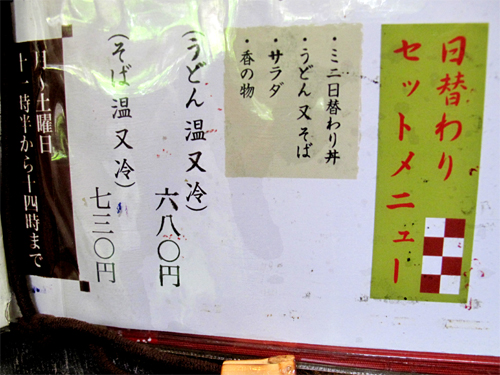 日替わり
セットメニュー
・ミニ日替わり丼
・うどん又そば
・サラダ
・香の物
(うどん 温又冷)
六八〇円
(そば 温又冷)
七三〇円
土曜日
十一時半から十四時まで